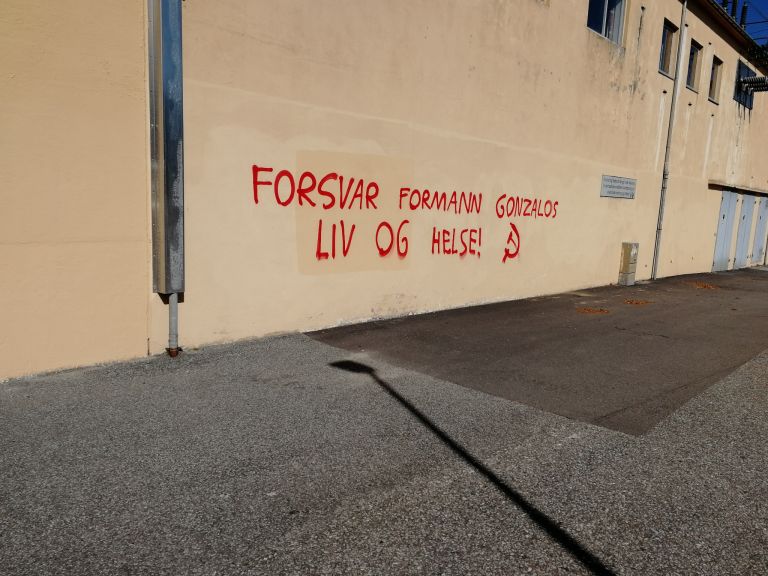 FORSVAR FORMANN GONZALOS
LIV OG HELSE!